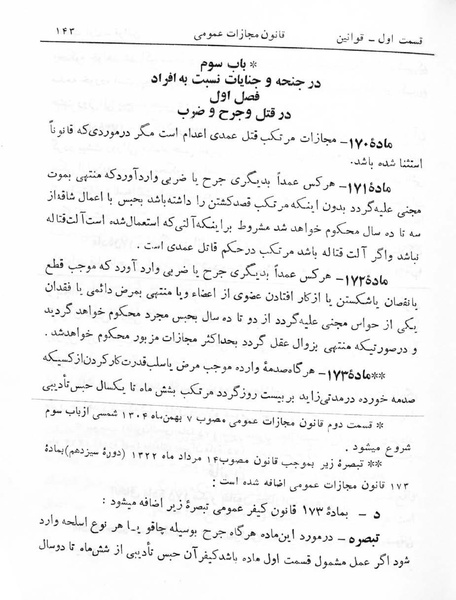 قسمت اول ـ قوانین
قانون مجازات عمومی
۱۴۳
* باب سوم
در جنحه و جنایات نسبت به افراد
فصل اول
در قتل وجرح و ضرب
مادهٔ ۱۷۰ـ مجازات مرتکب قتل عمدی اعدام است مگر درموردی‌که قانوناً
استثنا شده باشد.
مادهٔ ۱۷۱ـ هرکس عمداً بدیگری جرح یا ضربی واردآوردکه منتهی بموت
مجنی علیه‌گردد بدون اینکه مرتکب قصدکشتن را داشته‌باشد بحبس با اعمال شاقه‌از
سه تا ده سال محکوم خواهد شد مشروط براینکه‌آلتی‌که استعمال‌شده است‌آلت‌قتاله
نباشد واگر آلت قتاله باشد مرتکب درحکم قاتل عمدی است .
مادهٔ ۱۷۲ـ هرکس عمداً بدیگری جرح یا ضربی وارد آورد که موجب قطع
یانقصان یاشکستن یا ازکار افتادن عضوی از اعضاء ویا منتهی بمرض دائمی یا فقدان
یکی از حواس مجنی علیه‌گردد از دو تا ده سال بحبس مجرد محکوم خواهد گردید
و درصورتیکه منتهی بزوال عقل گردد بحداکثر مجازات مزبور محکوم خواهدشد .
**مادهٔ ۱۷۳ـ هرگاه‌صدمهٔ وارده موجب مرض یاسلب‌قدرت‌کارکردن‌ازکسیکه
صدمه خورده درمدتی‌زاید بربیست روزگردد مرتکب بشش ماه تا یکسال حبس‌تأدیبی
* قسمت دوم قانون مجازات عمومی مصوب ۷ بهمن‌ماه ۱۳۰۴ شمسی ازباب سوم
شروع میشود .
** تبصرهٔ زیر بموجب قانون مصوب۱۴ مرداد ماه ۱۳۲۲ (دورهٔ سیزدهم)بمادهٔ
۱۷۳ قانون مجازات عمومی اضافه شده است :
د ـ بمادهٔ ۱۷۳ قانون کیفر عمومی تبصرهٔ زیر اضافه میشود :
تبصره ـ درمورد این‌ماده هرگاه جرح بوسیله چاقو یا هر نوع اسلحه وارد
شود اگر عمل مشمول قسمت اول ماده باشدکیفرآن حبس تأدیبی از شش‌ماه تا دوسال